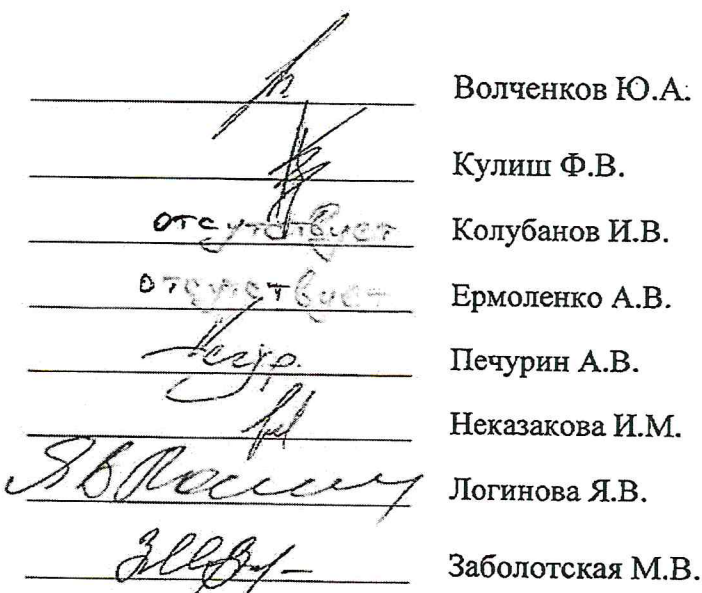 Волченков Ю.А.
Кулиш Ф.В.
отсутствует Колубанов И.В.
отсутствует Ермоленко А.В.
Печурин А.В.
Неказакова И.М.
Логинова Я.В.
Заболотская М.В.